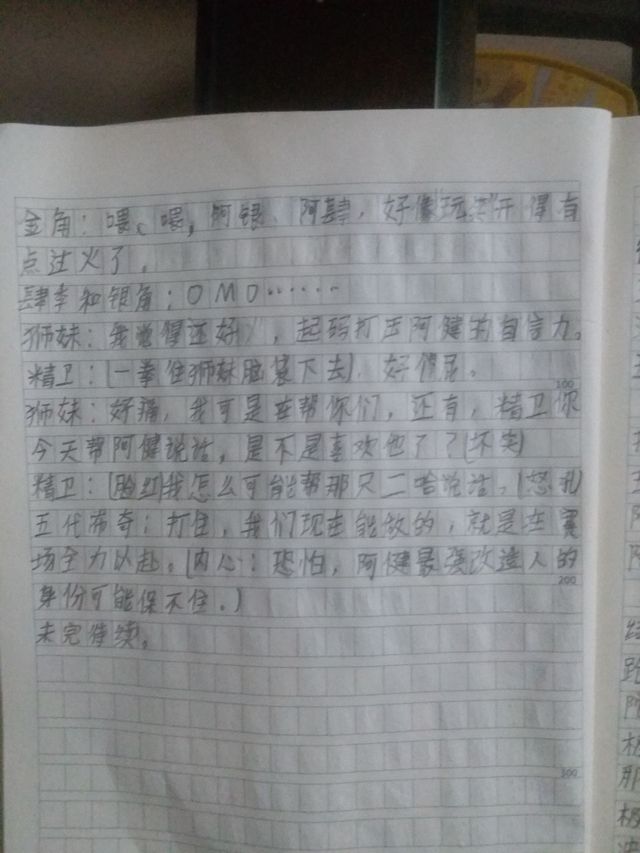 金角：喂、喂，阿银、阿肆，好像玩笑开得有
点过火了。
肆季和银角：OMO……
狮妹：我觉得还好，起码打压阿健的自信力。
精卫：(一拳住狮妹脑袋下去)，好个屁。
100
狮妹：好痛，我可是在帮你们，还有，精卫你
今天帮阿健说话，是不是喜欢他了？(坏笑)
精卫：(脸红)我怎么可能帮那只二哈说话。(怒吼)
五代布奇：打住，我们现在能做的，就是在赛
场全力以赴。(内心：恐怕，阿健最强改造人的
200
身份可能保不住。)
未完待续。
300